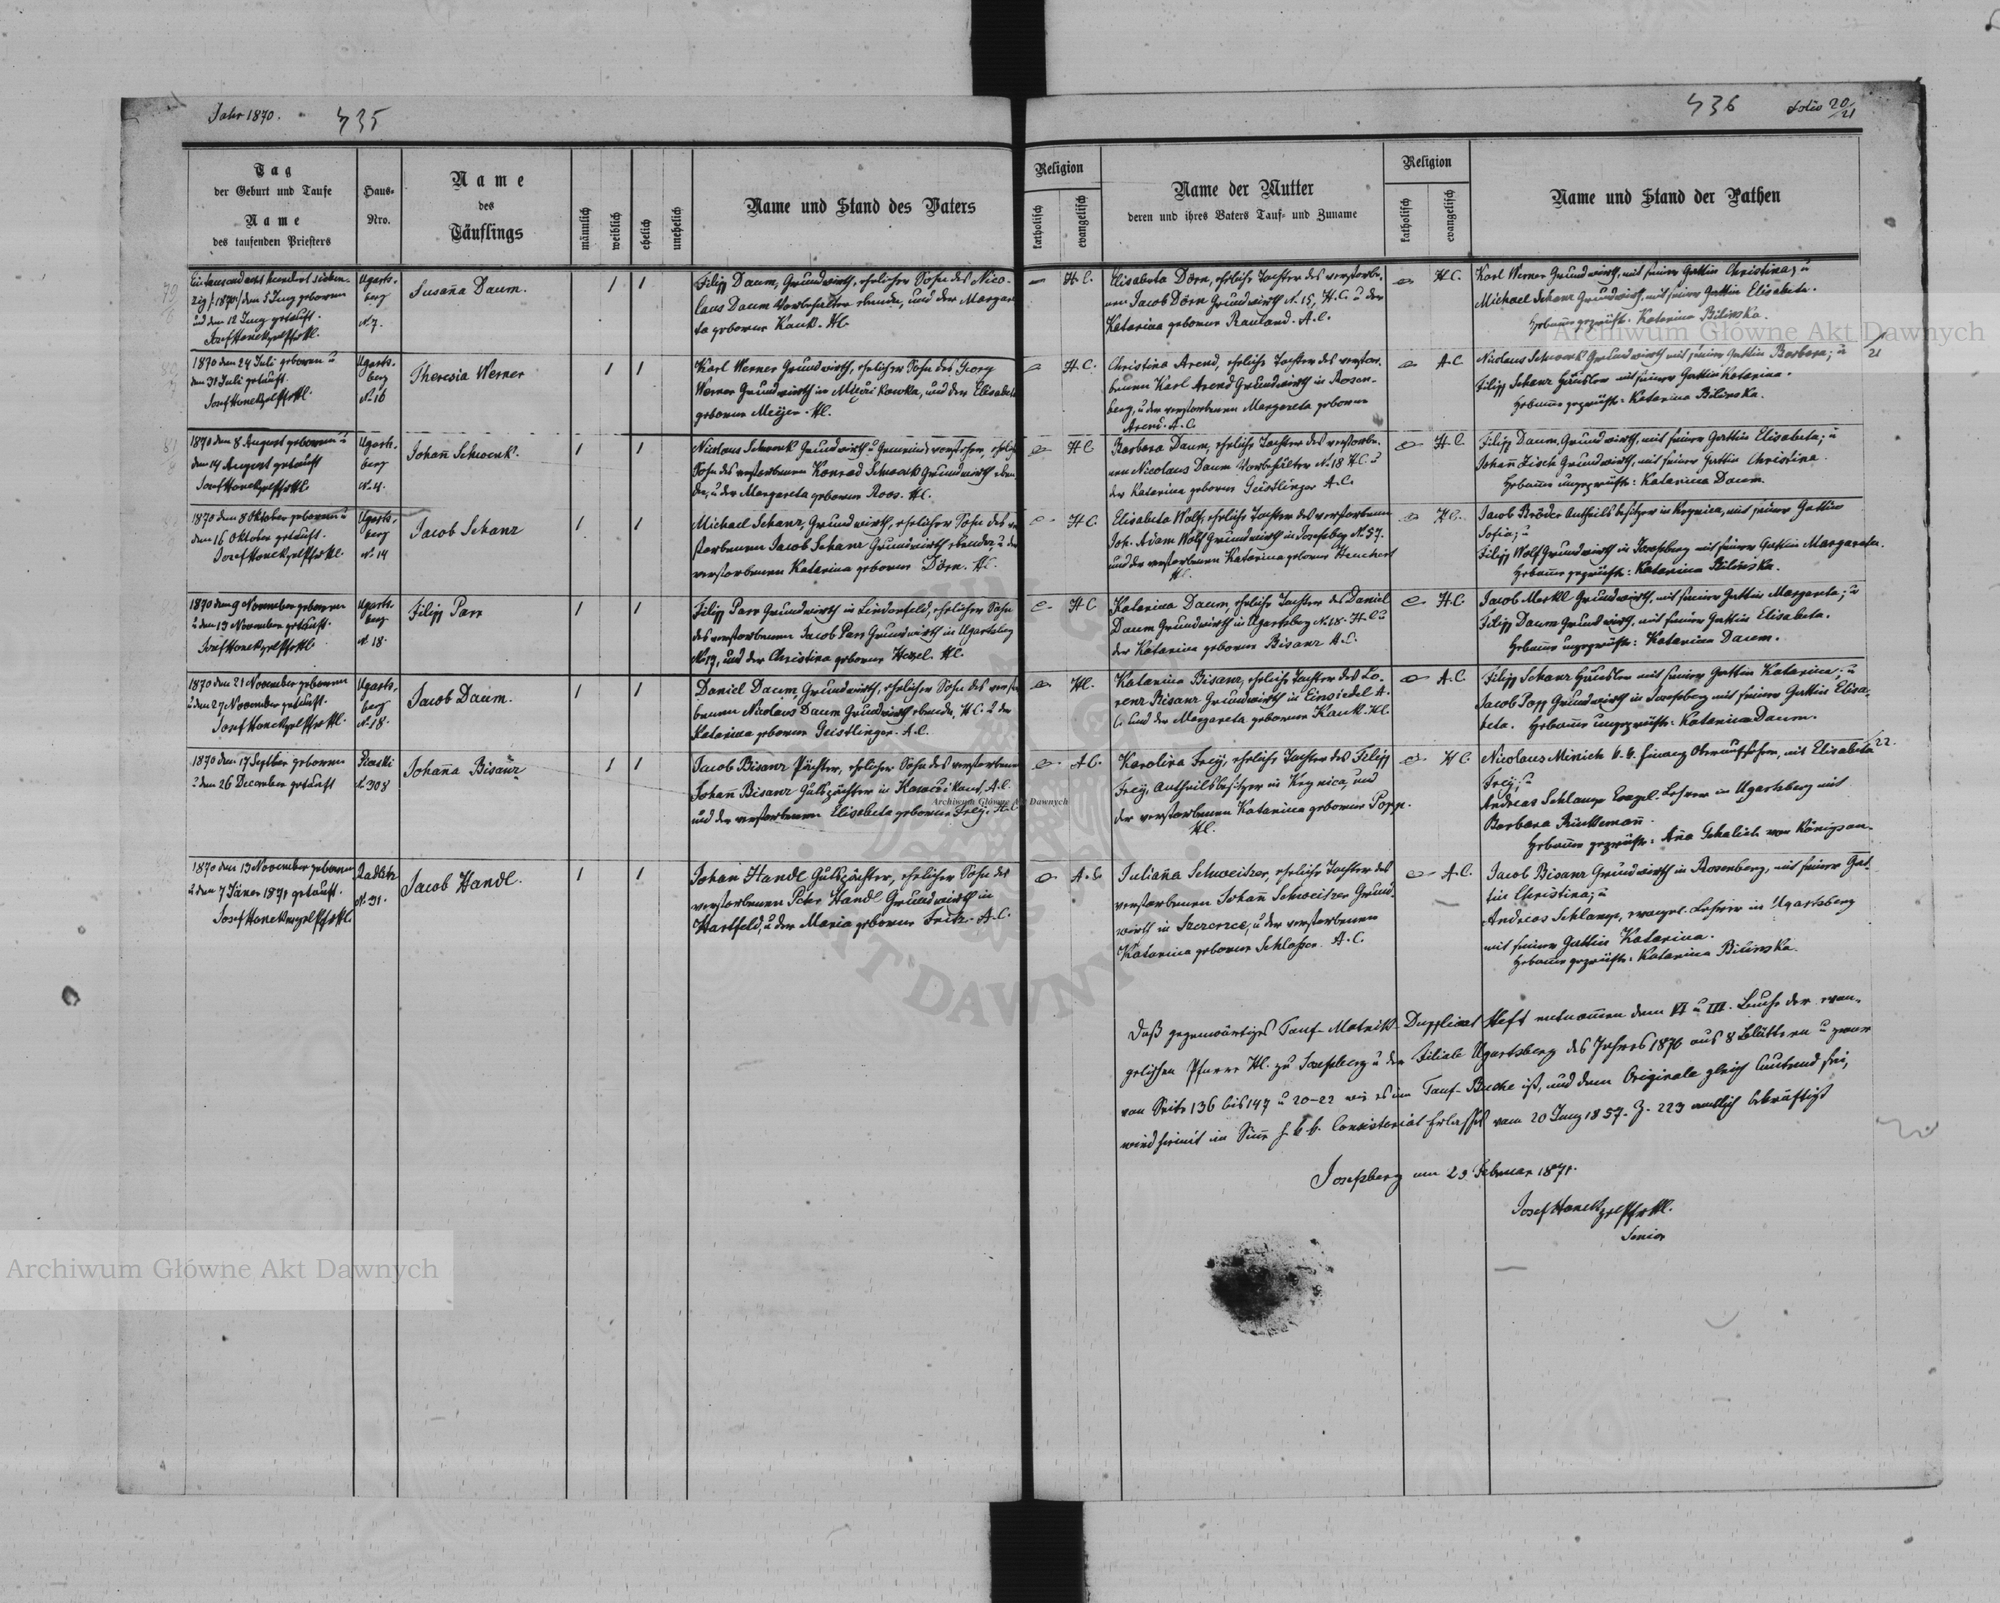 Jahr 1870.
435
436
Folio 20/21
Tag
der Geburt und Taufe
Name
des taufenden Priesters
Haus-
Nro.
Name
des
Täuflings
männlich
weiblich
ehelich
unehelich
Name und Stand des Vaters
Religion
katholisch
evangelisch
Name der Mutter
deren und ihres Vaters Tauf- und Zuname
Religion
katholisch
evangelisch
Name und Stand der Pathen
Ein tausend acht hundert sieben-
zig /:1870:/ den 5 Juny geboren
und den 12 Juny getauft.
Ugarts-
berg
N. 7.
Susaña Daum.
1 1
Filipp Daum, Grundwirth, ehelicher Sohn des Nico-
laus Daum Vorbehälter ebenda, und der Margare-
ta geborene Kauk. H.C.
H.C.
Elisabeta Dörn, eheliche Tochter des verstorbe-
nen Jacob Dörn Grundwirth N. 15, H.C. u der
Katarina geborene Rauland. A.C.
H.C.
Karl Werner Grundwirth, mit seiner Gattin Christina; u
Michael Schanz Grundwirth, mit seiner Gattin Elisabeta.
Hebame geprüft. Katarina Bilinska.
1870 den 24 Juli geboren u
den 31 Juli getauft.
Ugarts-
berg
N. 16
Theresia Werner
1 1
Karl Werner Grundwirth, ehelicher Sohn des Georg
Werner Grundwirth in Mićurikowka, und der Elisabeta
geborene Meÿer. H.C.
H.C.
Christina Arend, eheliche Tochter des verstor-
benen Karl Arend Grundwirth in Rosen-
berg, u der verstorbenen Margareta geborene
Arend. A.C.
A.C.
21
Nicolaus Schwenk Grundwirth mit seiner Gattin Barbara; u
Filipp Schanz Häusler mit seiner Gattin Katarina.
Hebame geprüft: Katarina Bilinska.
1870 den 8 August geboren u
den 14 August getauft
Ugarts-
berg
N. 4.
Johañ Schwenk.
1 1
Nicolaus Schwenk Grundwirth u Gemeindevorsteher, ehelicher
Sohn des verstorbenen Konrad Schwenk Grundwirth eben-
da, u der Margareta geborene Roos. H.C.
H.C.
Barbara Daum, eheliche Tochter des verstorbe-
nen Nicolaus Daum Vorbehälter N. 18 H.C. u
der Katarina geborene Geistlinger A.C.
H.C.
Filipp Daum, Grundwirth, mit seiner Gattin Elisabeta; u
Johañ Zisch Grundwirth, mit seiner Gattin Christina.
Hebame ungeprüft: Katarina Daum.
1870 den 8 Oktober geboren u
den 16 Oktober getauft.
Ugarts-
berg
N. 14
Jacob Schanz
1 1
Michael Schanz, Grundwirth, ehelicher Sohn des ver-
storbenen Jacob Schanz Grundwirth ebenda, u der
verstorbenen Katarina geborene Dörn. H.C.
H.C.
Elisabeta Wolf, eheliche Tochter des verstorbenen
Joh. Adam Wolf Grundwirth in Josefsberg N. 57.
und der verstorbenen Katarina geborene Heuchert
H.C.
H.C.
Jacob Bröder Antheilsbesitzer in Krynica, mit seiner Gattin
Sofia; u
Filipp Wolf Grundwirth in Josefsberg mit seiner Gattin Margareta.
Hebame geprüft: Katarina Bilinska.
1870 den 9 November geboren
u den 13 November getauft.
Ugarts-
berg
N. 18.
Filipp Parr
1 1
Filipp Parr Grundwirth in Lindenfeld, ehelicher Sohn
des verstorbenen Jacob Parr Grundwirth in Ugartsberg
N. 19, und der Christina geborene Hetzel. H.C.
H.C.
Katarina Daum, eheliche Tochter des Daniel
Daum Grundwirth in Ugartsberg N. 18. H.C. u
der Katarina geborene Bisanz A.C.
H.C.
Jacob Merkl Grundwirth, mit seiner Gattin Margareta; u
Filipp Daum Grundwirth, mit seiner Gattin Elisabeta.
Hebame ungeprüft: Katarina Daum.
1870 den 21 November geboren
u den 27 November getauft.
Ugarts-
berg
N. 18.
Jacob Daum.
1 1
Daniel Daum, Grundwirth, ehelicher Sohn des verstor-
benen Nicolaus Daum Grundwirth ebenda, H.C. u der
Katarina geborene Geistlinger. A.C.
H.C.
Katarina Bisanz, eheliche Tochter des Lo-
renz Bisanz Grundwirth in Einsiedel A.
C. und der Margareta geborene Kauk. H.C.
A.C.
Filipp Schanz Häusler mit seiner Gattin Katarina; u
Jacob Popp Grundwirth in Josefsberg mit seiner Gattin Elisa-
beta. Hebame ungeprüft: Katarina Daum.
1870 den 17 September geboren
u den 26 December getauft
N. 308
Johaña Bisanz
1 1
Jacob Bisanz Pächter, ehelicher Sohn des verstorbenen
Johañ Bisanz Gutspächter in A.C.
und der verstorbenen Elisabeta geborene Frey. H.C.
A.C.
Karolina Frey, eheliche Tochter des Filipp
Frey Antheilsbesitzer in Krynica, und
der verstorbenen Katarina geborene Popp.
H.C.
H.C.
22.
Nicolaus Minich k.k. Finanz Oberaufseher, mit Elisabeta
Frey; u
Andreas Schlamp Evagel. Lehrer in Ugartsberg mit
Barbara
Hebame geprüft: Aña von Königsau.
1870 den 13 November geboren
u den 7 Jäner 1871 getauft.
N. 31.
Jacob Handl.
1 1
Johan Handl Gutspächter, ehelicher Sohn des
verstorbenen Peter Handl Grundwirth in
Hartfeld, u der Maria geborene Fritz. A.C.
A.C.
Juliaña Schweitzer, eheliche Tochter des
verstorbenen Johañ Schweitzer Grund-
wirth in Szczerzec, u der verstorbenen
Katarina geborene Schlosser. A.C.
A.C.
Jacob Bisanz Grundwirth in Rosenberg, mit seiner Gat-
tin Christina; u
Andreas Schlamp, evangel. Lehrer in Ugartsberg
mit seiner Gattin Katarina.
Hebame geprüft: Katarina Bilinska.
Daß gegenwärtiges Tauf-Matrik-Duplicat Heft entnommen dem VI u III. Buche der evan-
gelischen Pfarre H.C. zu Josefsberg u der Filiale Ugartsberg des Jahres 1870 aus 8 Blättern u zwar
von Seite 136 bis 147 u 20-22 wie es im Tauf-Buche ist, und dem Originale gleich lautend sei,
wird hiemit im Sinne h. k.k. Consistorial Erlasses vom 20 Juny 1857. Z. 223 amtlich bekräftigt
Josefsberg am 23 Februar 1871.
Senior
Archiwum Główne Akt Dawnych
Archiwum Główne Akt Dawnych
Archiwum Główne Akt Dawnych